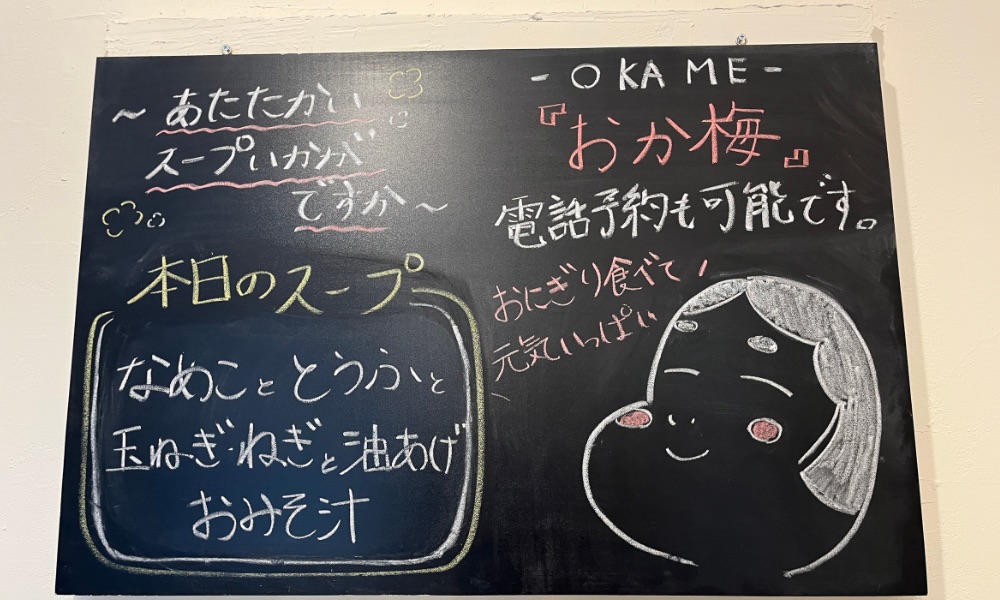 ～あたたかい
スープいかが
ですか～
本日のスープ
なめこととうふと
玉ねぎ・ねぎと油あげ
おみそ汁
- OKAME -
『おか梅』
電話予約も可能です。
おにぎり食べて！
元気いっぱい